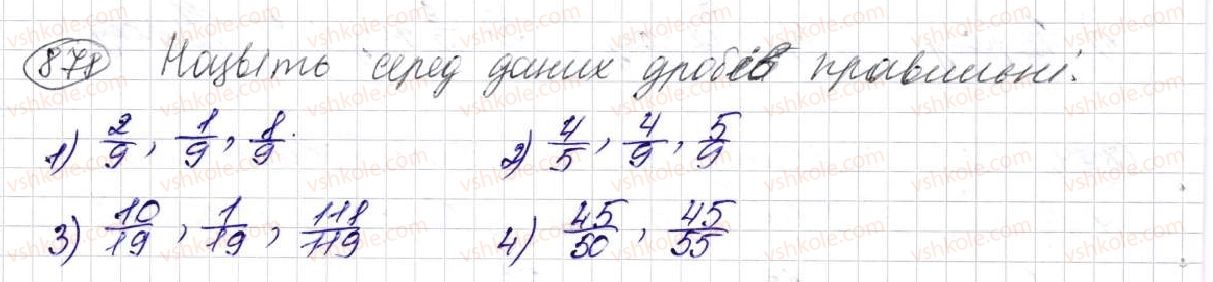 878 Нацвіть серед даних дробів правильні.
1) 2/9, 1/9, 8/9. 2) 4/5, 4/9, 5/9
3) 10/19, 1/19, 118/119 4) 45/50, 45/55